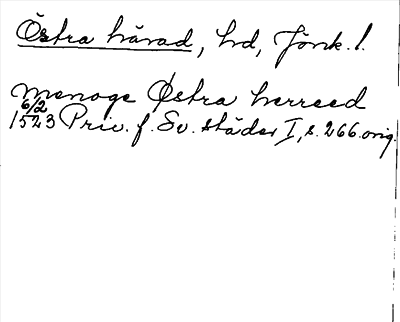 Östra härad, hd, Jönk. l.
menoge Østra herreed
6/2
1523 Priv. f. Sv. städer I, s. 266. orig.